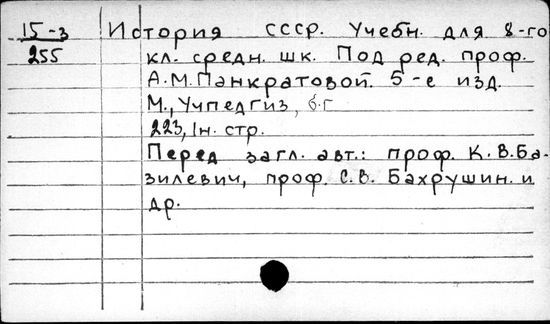 15-3 История СССР. Учебн. для 8-го
255 кл. средн. шк. Под ред. проф.
А.М.Панкратовой. 5-е изд.
М., Учпедгиз, б.г
223, 1н. стр.
Перед загл. авт.: проф. К.В.Ба-
зилевич, проф. С.В. Бахрушин. и
др.